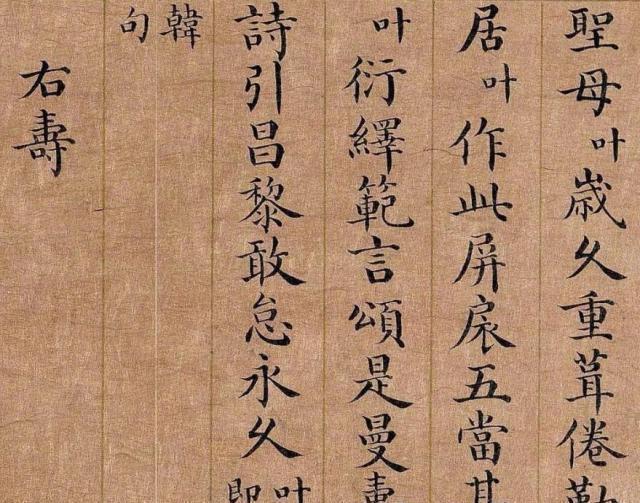 聖母叶歲久重葺倦勤
居叶作此屏扆五當其
叶衍繹範言頌是曼壽
詩引昌黎敢怠永久叶即
韓句
右壽